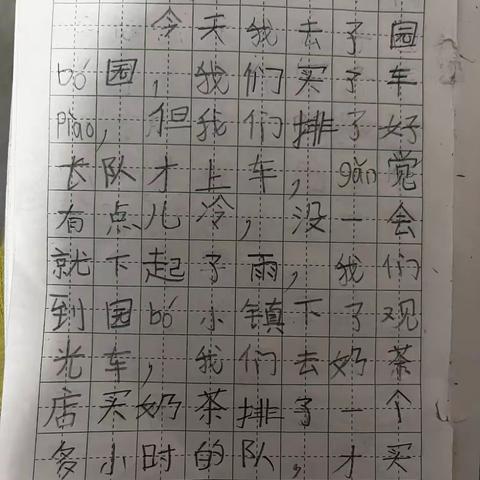 今天我去了园
bó园，我们买了车
piào，但我们排了好
长队才上车，gǎn觉
有点儿冷，没一会
就下起了雨，我们
到园bó小镇下了观
光车，我们去奶茶
店买奶茶排了一个
多小时的队，才买